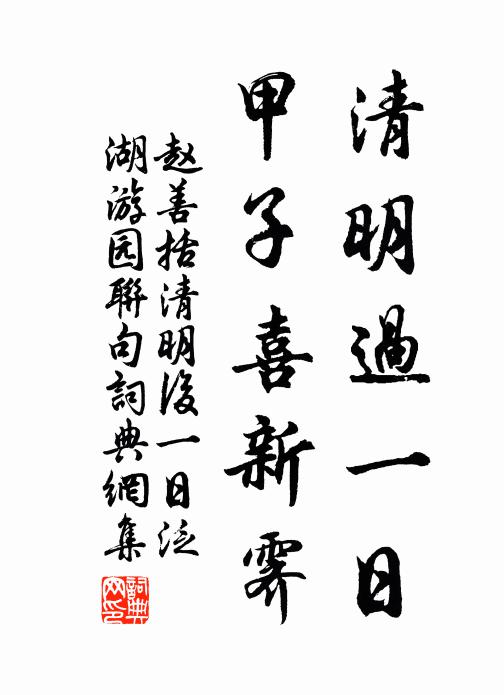 清明過一日
甲子喜新霽
赵善括清明後一日泛
湖游园聯句詞典網集
詞典
网印